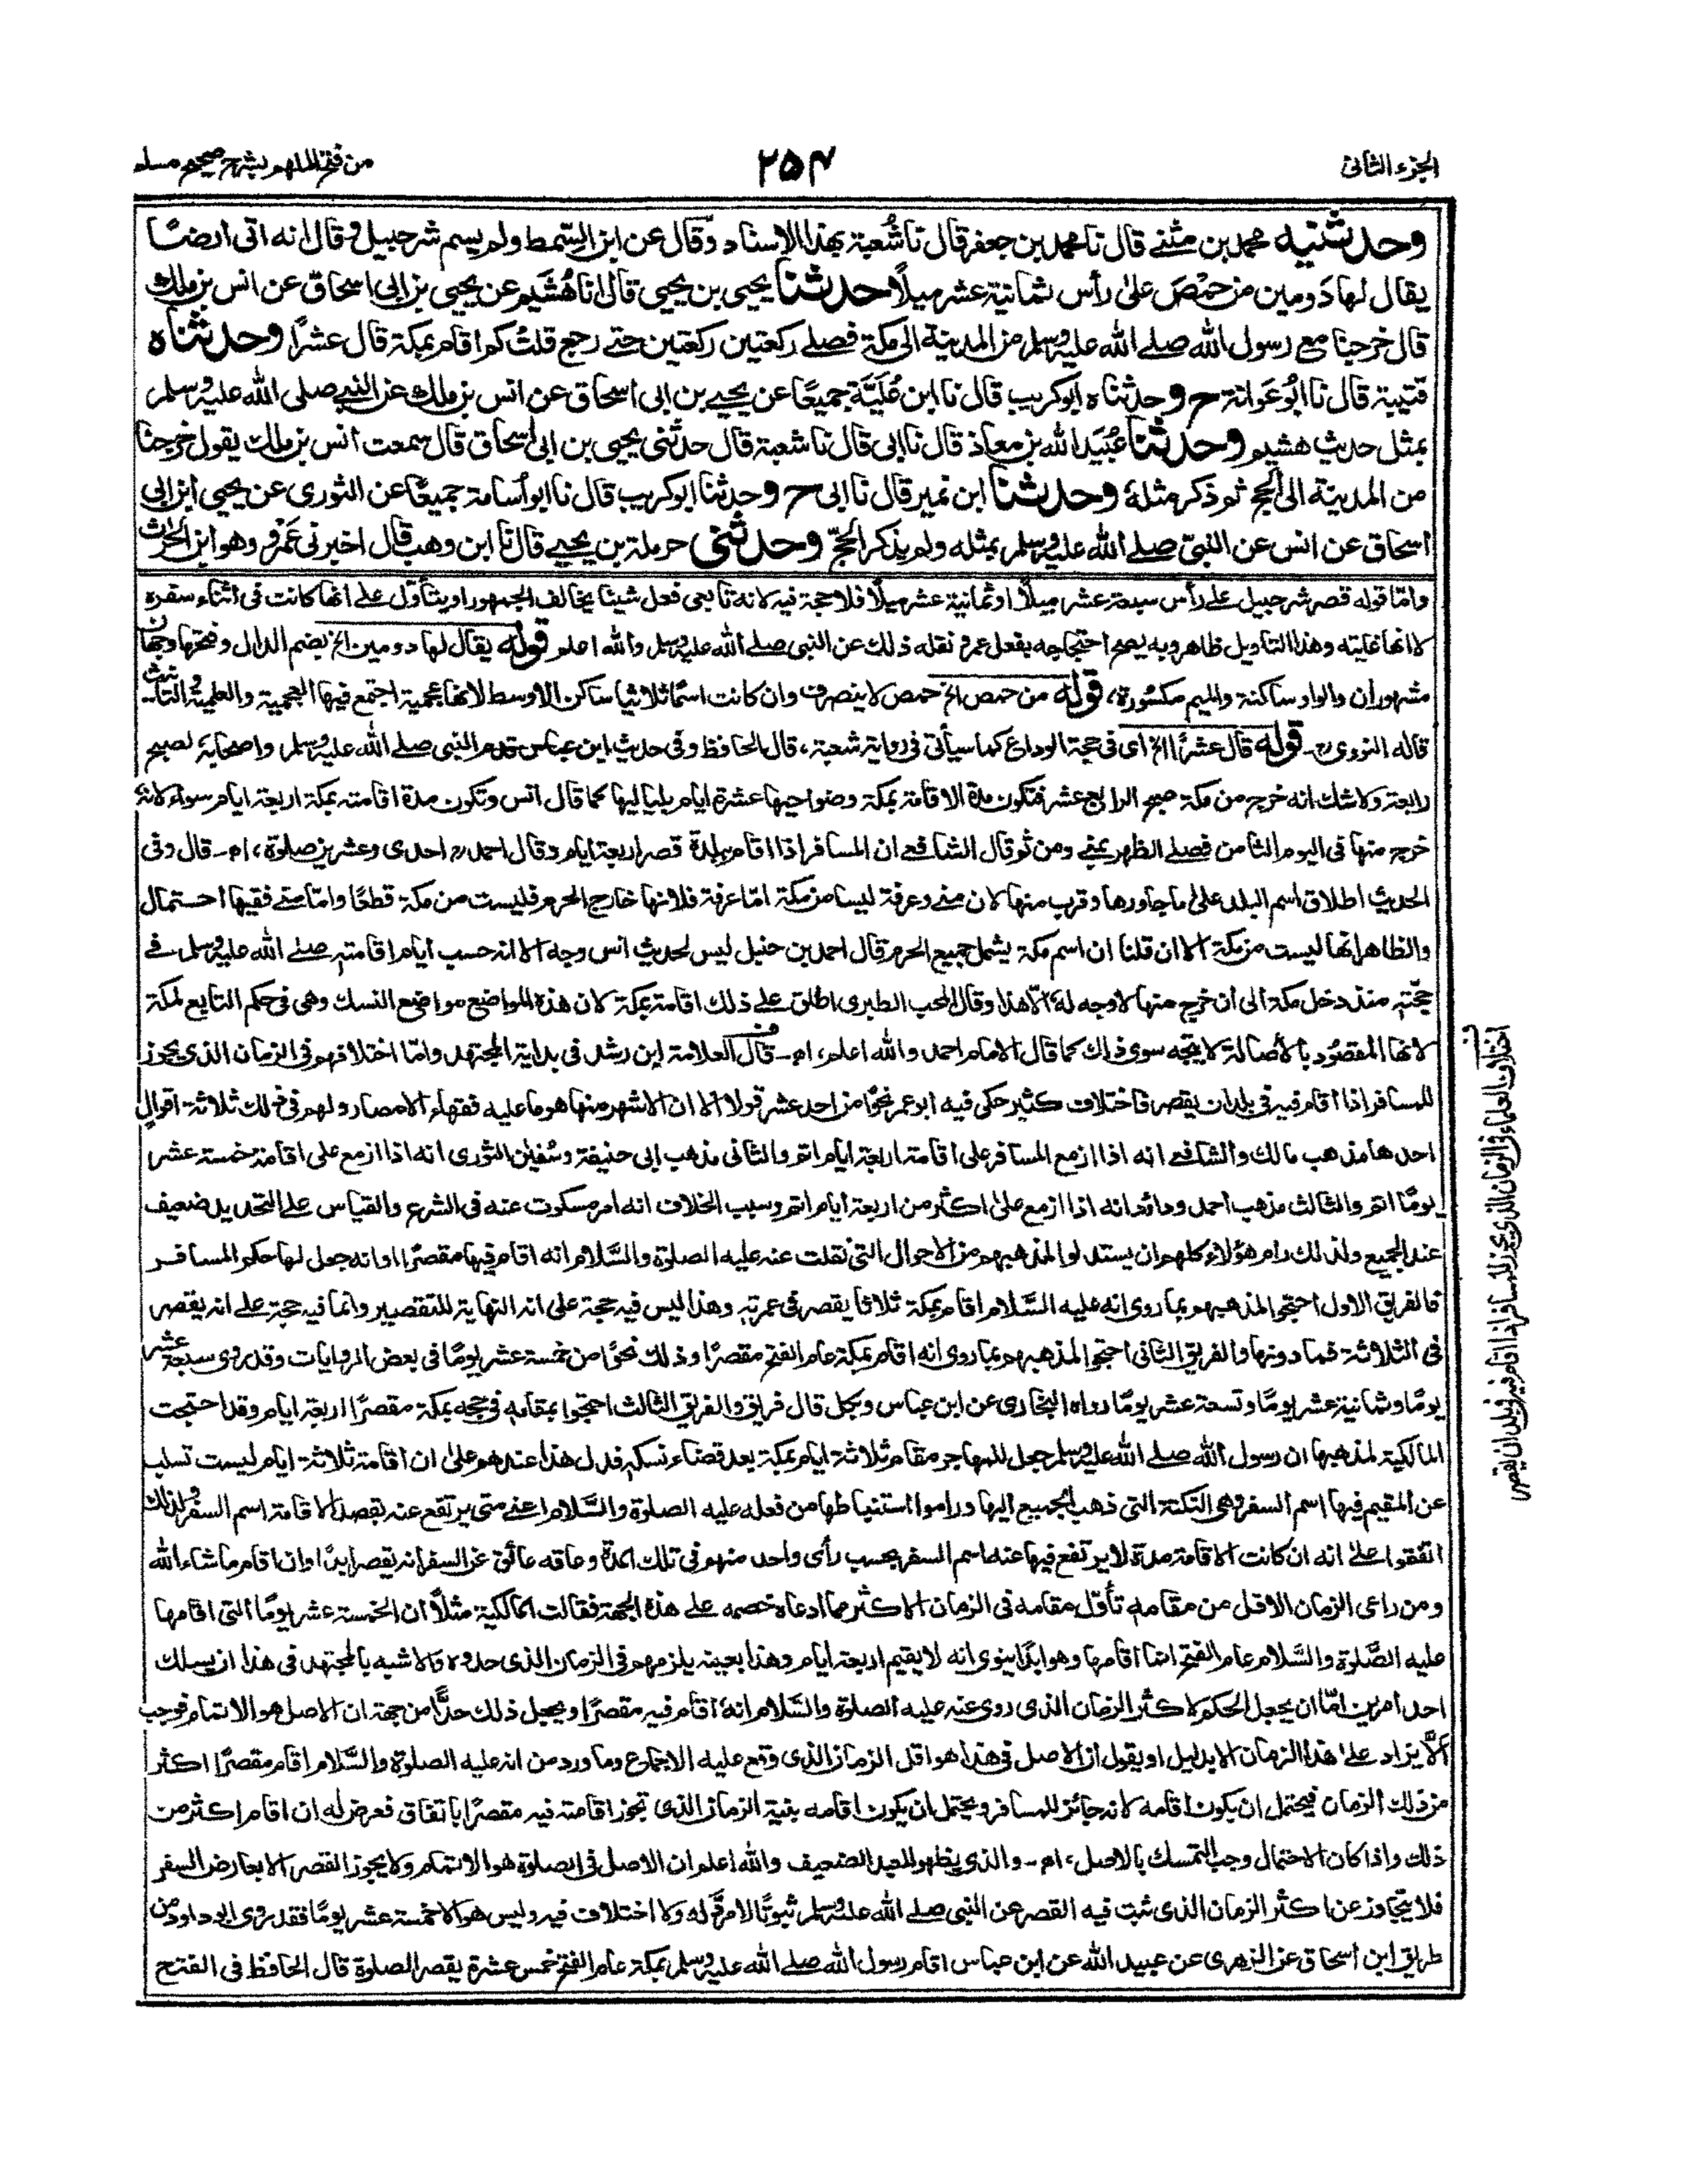 الجزء الثانی
۲۵۴
من فتح الملهم بشرح صحیح مسلم
وحدثنیه محمد بن مثنے قال نا محمد بن جعفر قال نا شُعبة بهذا الاسناد وقال عن ابن السِّمط ولم یسم شرحبیل وقال انه اتی ارضًا
یقال لها دَومین من حمْصَ علیٰ رأس ثمانیة عشر میلًا حدثنا یحیی بن یحیی قال انا هُشَیم عن یحیی بن ابی اسحاق عن انس بن ملك
قال خرجنا مع رسول الله صلے الله علیه وسلم من المدینة الی مکة فصلے رکعتین رکعتین حتے رجع قلتُ کم اقام بمکة قال عشرًا وحدثناه
قتیبة قال نا ابُو عَوانة ح وحدثناه ابو کریب قال نا ابن عُلَیَّة جمیعًا عن یحیے بن ابی اسحاق عن انس بن ملك عن النبے صلی الله علیه وسلم
بمثل حدیث هشیم وحدثنا عُبَید الله بن معاذ قال نا ابی قال نا شعبة قال حدثنی یحیی بن ابی اسحاق قال سمعت انس بن ملك یقول خرجنا
من المدینة الی الحج ثم ذکر مثلهٗ وحدثنا ابن نمیر قال نا ابی ح وحدثنا ابو کریب قال نا ابو اُسامة جمیعًا عن الثوری عن یحیی ابن ابی
اسحاق عن انس عن النبیّ صلے الله علیه وسلم بمثله ولم یذکر الحجّ وحدثنی حرملة بن یحیے قال نا ابن وهب قال اخبرنی عَمْرو وهو ابن الحٰرث
وامّا قوله قصر شرحبیل علے رأس سبعة عشر میلًا او ثمانیة عشر میلًا فلا حجة فیه لانه تابعی فعل شیئا یخالف الجمهور او یتأول علے انها کانت فی اثناء سفره
لا انها غایته وهذا التاویل ظاهر وبه یصح احتجاجه بفعل عمر ونقله ذلك عن النبی صلے الله علیه وسلم والله اعلم قوله یقال لها دومین الخ بضم الدال وفتحها وجهان
مشهوران والواو ساکنة والمیم مکسُورة، قوله من حمص الخ حمص لا ینصرف وان کانت اسمًا ثلاثیا ساکن الاوسط لانها عجمیة اجتمع فیها العجمیة والعلمیة والتأنیث
قاله النووی رح۔ قوله قال عشرًا الخ ای فی حجة الوداع کما سیأتی فی روایة شعبة، قال الحافظ وفی حدیث ابن عباس قدم النبی صلے الله علیه وسلم واصحابهٗ لصبح
رابعة ولا شك انه خرج من مکة صبح الرابع عشر فتکون مدة الاقامة بمکة وضواحیها عشرة ایام بلیالیها کما قال انس وتکون مدة اقامته بمکة اربعة ایام سواء لانهٗ
خرج منها فی الیوم الثامن فصلے الظهر بمنے ومن ثم قال الشافعے ان المسافر اذا اقام ببلدة قصر اربعة ایام وقال احمد رح احدی وعشرین صلوة، اھ۔ قال وفی
الحدیث اطلاق اسم البلد علیٰ ما جاورها وقرب منها لان منے وعرفة لیسا من مکة امّا عرفة فلانها خارج الحرم فلیست من مکة قطعًا وامّا منے ففیها احتمال
والظاهر انها لیست من مکة الا ان قلنا ان اسم مکة یشمل جمیع الحرم قال احمد بن حنبل لیس لحدیث انس وجه الا انه حسب ایام اقامته صلے الله علیه وسلم فے
حجّته منذ دخل مکة الی ان خرج منها لا وجه لهٗ الّا هذا وقال المحب الطبری اطلق علے ذلك اقامة بمکة لان هذه المواضع مواضع النسك وهی فی حکم التابع لمکة
لانها المقصُود بالأصالة لا یتجه سوی ذلك کما قال الامام احمد والله اعلم، اھ۔ قال العلامة ابن رشد فی بدایة المجتهد وامّا اختلافهم فی الزمان الذی یجوز
للمسافر اذا اقام فیه فی بلد ان یقصر فاختلاف کثیر حکی فیه ابو عمر نحوًا من احد عشر قولا الا ان الاشهر منها هو ما علیه فقهاء الامصار ولهم فی ذلك ثلاثة اقوالٍ
احدها مذهب مالك والشافعے انه اذا ازمع المسافر علی اقامة اربعة ایام اتم والثانی مذهب ابی حنیفة وسُفین الثوری انه اذا ازمع علی اقامة خمسة عشر
یومًا اتم والثالث مذهب احمد وداؤد انه اذا ازمع علیٰ اکثر من اربعة ایام اتم وسبب الخلاف انه امر مسکوت عنه فی الشرع والقیاس علے التحدید ضعیف
عند الجمیع ولذلك رام هؤلاء کلهم ان یستدلوا لمذهبهم من الاحوال التی نقلت عنه علیه الصلوة والسَّلام انه اقام فیها مقصرًا او انه جعل لها حکم المسافر
فالفریق الاول احتجوا لمذهبهم بما روی انه علیه السَّلام اقام بمکة ثلاثا یقصر فی عمرته وهذا لیس فیه حجة علی انه النهایة للتقصیر وانما فیه حجة علے انه یقصر
فی الثلاثة فما دونها والفریق الثانی احتجوا لمذهبهم بما روی انه اقام بمکة عام الفتح مقصرًا وذلك نحوًا من خمسة عشر یومًا فی بعض الروایات وقد روی سبعة عشر
یومًا وثمانیة عشر یومًا وتسعة عشر یومًا رواه البخاری عن ابن عباس وبکل قال فریق والفریق الثالث احتجوا بمقامه فی حجه بمکة مقصرًا اربعة ایام وقد احتجت
المالکیة لمذهبها ان رسول الله صلے الله علیه وسلم جعل للمهاجر مقام ثلاثة ایام بمکة بعد قضاء نسکه فدل هذا عندهم علیٰ ان اقامة ثلاثة ایام لیست تسلب
عن المقیم فیها اسم السفر وهی النکتة التی ذهب الجمیع الیها وراموا استنباطها من فعله علیه الصلوة والسَّلام اعنے متی یرتفع عنه بقصد الاقامة اسم السفر ولذلك
اتفقوا علےٰ انه ان کانت الاقامة مدة لا یرتفع فیها عنه اسم السفر بحسب رأی واحد منهم فی تلك المدة وعاقه عائق عن السفر انه یقصر ابدًا وان اقام ما شاء الله
ومن راعی الزمان الاقل من مقامه تأوّل مقامه فی الزمان الاکثر مما ادعاه خصمه علے هذه الجهة فقالت المالکیة مثلًا ان الخمسة عشر یومًا التی اقامها
علیه الصَّلوة والسَّلام عام الفتح انما اقامها وهو ابدًا ینوی انه لا یقیم اربعة ایام وهذا بعینه یلزمهم فی الزمان الذی حدوه والاشبه بالمجتهد فی هذا ان یسلك
احد امرین امّا ان یجعل الحکم لاکثر الزمان الذی روی عنه علیه الصلوة والسَّلام انهٗ اقام فیه مقصرًا ویجعل ذلك حدًّا من جهة ان الاصل هو الاتمام فوجب
الّا یزاد علےٰ هذا الزمان الا بدلیل او یقول ان الاصل فی هذا هو اقل الزمان الذی وقع علیه الاجماع وما ورد من انه علیه الصلوة والسَّلام اقام مقصرًا اکثر
من ذلك الزمان فیحتمل ان یکون اقامه لانه جائز للمسافر ویحتمل ان یکون اقامه بنیة الزمان الذی تجوز اقامته فیه مقصرًا باتفاق فعرض له ان اقام اکثر من
ذلك واذا کان الاحتمال وجب التمسك بالاصل، اھ۔ والذی یظهر للعبد الضعیف والله اعلم ان الاصل فی الصلوة هو الاتمام ولا یجوز القصر الا بعارض السفر
فلا یتجاوز عن اکثر الزمان الذی ثبت فیه القصر عن النبی صلے الله علیه وسلم ثبوتًا لا مردّ له ولا اختلاف فیه ولیس هو الا خمسة عشر یومًا فقد روی ابو داود من
طریق ابن اسحاق عن الزهری عن عبید الله عن ابن عباس اقام رسول الله صلے الله علیه وسلم بمکة عام الفتح خمس عشرة یقصر الصلوة قال الحافظ فی الفتح
اختلاف العلماء فی الزمان الذی یجوز للمسافر اذا اقام فیه فی بلد ان یقصر